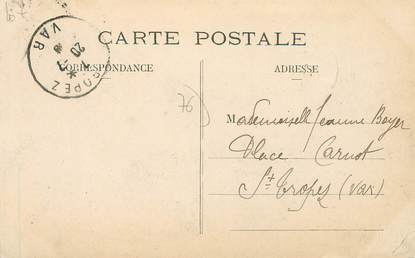 CARTE POSTALE
CORRESPONDANCE
ADRESSE
VAR
20
76
Mademoiselle Jeanne Boyer
Place Carnot
St Tropez (Var)